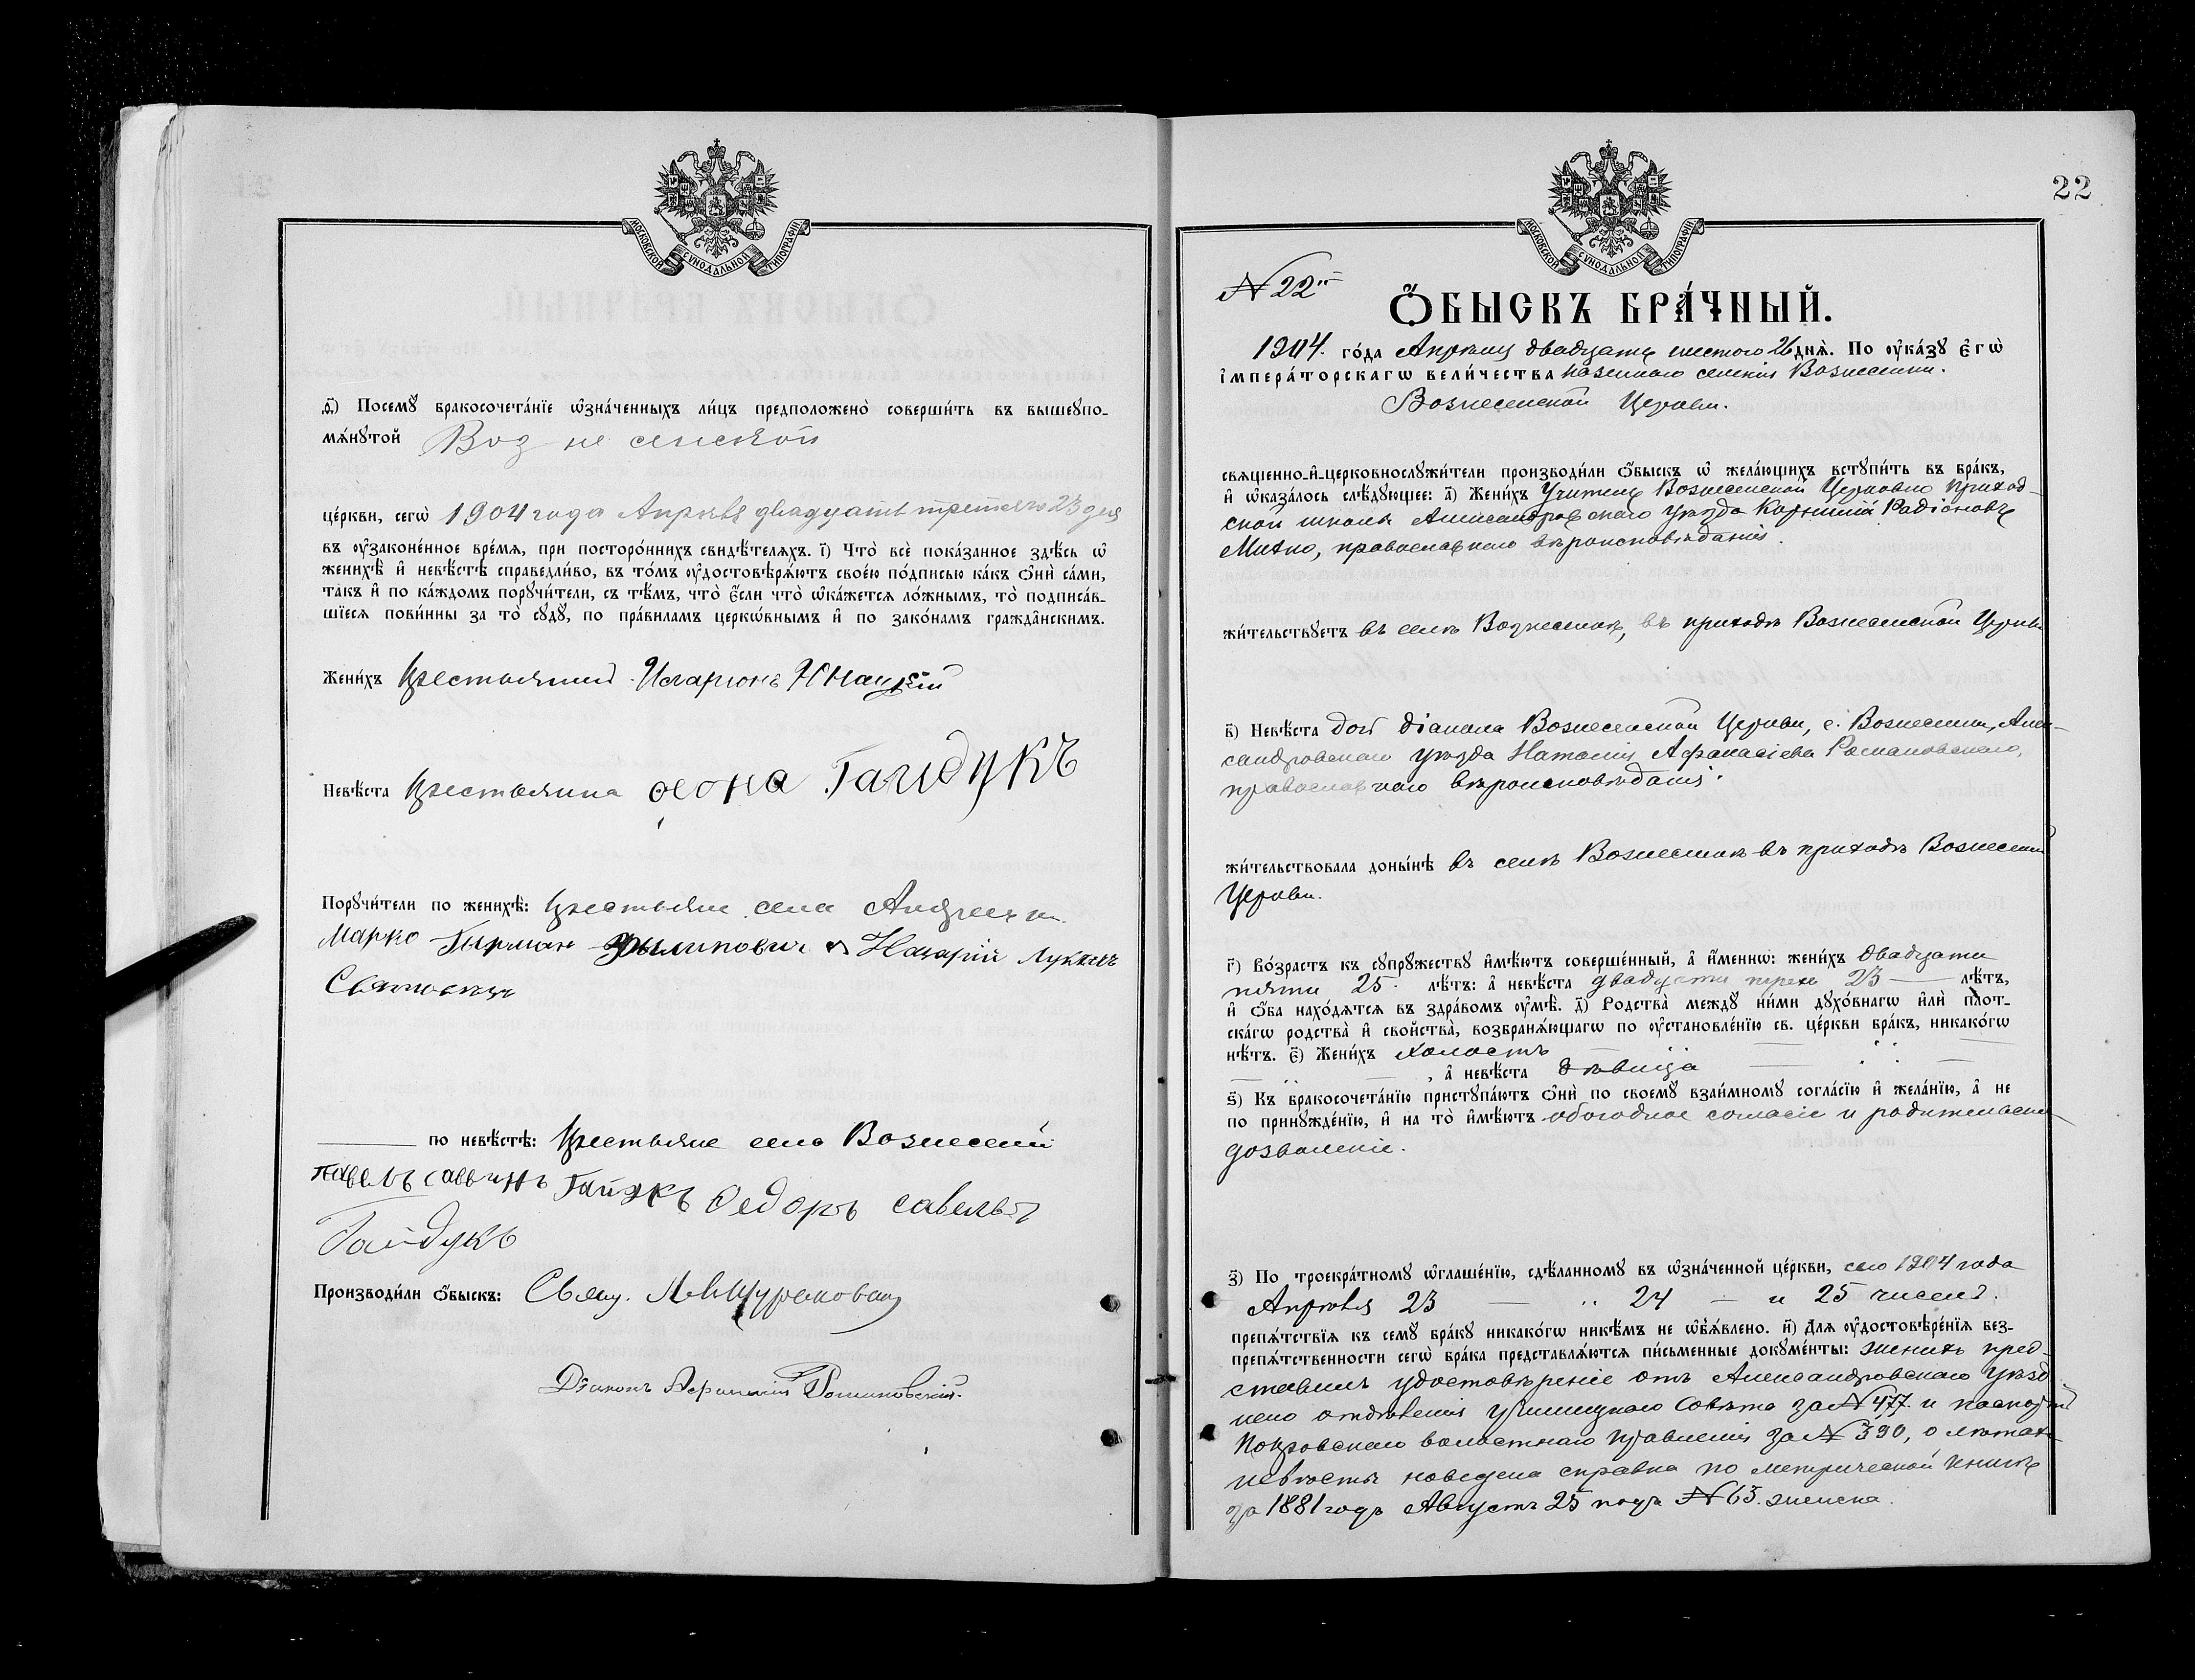 МОСКОВСКОЙ СѴНОДАЛЬНОЙ ТИПОГРАФІИ
ѳ҃) Посемꙋ бракосочета́нїе ѡ҆зна́ченныхъ ли́цъ предположено̀ соверши́ть въ вышеꙋпо-
мѧ́нꙋтой Воз не сенской
це́ркви, сегѡ̀ 1904 года Апрѣля двадцать третьяго 23 дня
въ ᲂу҆законе́нное вре́мѧ, при посторо́ннихъ свидѣ́телѧхъ. і҃) Что̀ всѐ пока́занное здѣ́сь ѡ҆
женихѣ̀ и҆ невѣ́стѣ справедли́во, въ то́мъ ᲂу҆достовѣрѧ́ютъ свое́ю по́дписью ка́къ ѻ҆нѝ са́ми,
та́къ и҆ по ка́ждомъ порꙋчи́тели, съ тѣ́мъ, что̀ є҆́сли что̀ ѡ҆ка́жетсѧ ло́жнымъ, то̀ подписа́в-
шїесѧ пови́нны за то̀ сꙋдꙋ̀, по пра́виламъ церкѡ́внымъ и҆ по зако́намъ гражда̑нскимъ.
Жени́хъ Крестьянинъ Иларіонъ
Невѣ́ста Крестьянка Ѳеона Гайдукъ
Порꙋчи́тели по женихѣ̀: Крестьяне села Андреевки
Марко Филиповичъ Назарій
по невѣ́стѣ: Крестьяне села Вознесенки
Павелъ Саввинъ Гайдукъ Ѳедоръ Савельев
Гайдукъ
Производи́ли ѻ҆́быскъ: Свящ.
Діаконъ Афанасій Романовскій.
22
МОСКОВСКОЙ СѴНОДАЛЬНОЙ ТИПОГРАФІИ
№ 22й
Ѻ҆́БЫСКЪ БРА́ЧНЫЙ.
1904. го́да Апрѣля двадцать шестого 26 днѧ̀. По ᲂу҆ка́зꙋ є҆гѡ̀
і҆мпера́торскагѡ вели́чества казеннаго селенія Вознесенки.
Вознесенской Церкви.
свѧще́нно-и҆-церковнослꙋжи́тели производи́ли ѻ҆́быскъ ѡ҆ жела́ющихъ встꙋпи́ть въ бра́къ,
и҆ ѡ҆каза́лось слѣ́дꙋющее: а҃) Жени́хъ Учитель Вознесенской Церковно приход-
ской школы Александровскаго уѣзда Корнилій Радіоновъ
Митко, православнаго вѣроисповѣданія.
жи́тельствꙋетъ въ селѣ Вознесенкѣ, въ приходѣ Вознесенской Церкви
в҃) Невѣ́ста дочь діакона Вознесенской Церкви, с. Вознесенки, Алек-
сандровскаго уѣзда Наталія Афанасіева Романовскаго,
православнаго вѣроисповѣданія.
жи́тельствовала доны́нѣ въ селѣ Вознесенкѣ въ приходѣ Вознесенской
Церкви.
г҃) Во́зрастъ къ сꙋпрꙋ́жествꙋ и҆мѣ́ютъ соверше́нный, а҆ и҆́меннѡ: жени́хъ двадцати
пяти 25. лѣ́тъ: а҆ невѣ́ста двадцати трехъ 23 лѣ́тъ,
и҆ ѻ҆́ба нахо́дѧтсѧ въ здра́вомъ ᲂу҆мѣ̀. д҃) Родства̀ междꙋ ни́ми дꙋхо́внагѡ и҆лѝ пло́т-
скагѡ родства̀ и҆ сво́йства, возбранѧ́ющагѡ по ᲂу҆становле́нїю св. це́ркви бра́къ, никако́гѡ
нѣ́тъ. є҃) Жени́хъ холостъ
, а҆ невѣ́ста дѣвица
ѕ҃) Къ бракосочета́нїю пристꙋпа́ютъ ѻ҆нѝ по своемꙋ̀ взаи́мномꙋ согла́сїю и҆ жела́нїю, а҆ не
по принꙋжде́нїю, и҆ на то̀ и҆мѣ́ютъ обоюдное согласіе и родительское
дозволеніе.
з҃) По троекра́тномꙋ ѡ҆глаше́нїю, сдѣ́ланномꙋ въ ѡ҆зна́ченной це́ркви, сего 1904 года
Апрѣля 23 — „ 24 — и 25 чиселъ.
препѧ́тствїѧ къ семꙋ̀ бра́кꙋ никако́гѡ никѣ́мъ не ѡ҆бъѧ́влено. и҃) Для ᲂу҆достовѣре́нїѧ без-
препѧ́тственности сегѡ̀ бра́ка представлѧ́ютсѧ пи́сьменные докꙋме́нты: женихъ пред-
ставилъ удостовѣреніе отъ Александровскаго уѣзд
наго отдѣленія училищнаго Совѣта за № 477. и паспортъ
Покровскаго волостнаго правленія за № 390, о лѣтахъ
невѣсты наведена справка по метрической книгѣ
за 1881 годъ Августъ 25 подъ № 63. женска.